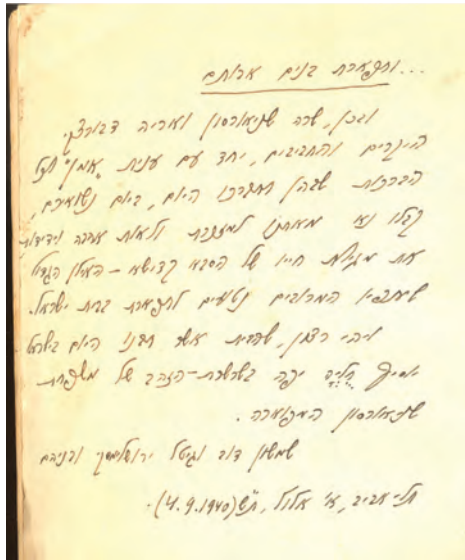 ...ותפארת בנים אבותם
ובכן, שרה שניאורסון ואריה
היקרים והחביבים, יחד עם ענית "אמן" לכל
הברכות שבהן תתברכו היום, ביום נשואיכם,
קבלו נא מאתנו למזכרת ולאות אהבה וידידות
את מגילת חייו של הסבא קדישא – האילן הגדול
שענפיו המרובים נטועים לתפארת בבית ישראל.
ויהי רצון, שהבית אשר תבנו היום בישראל
יוסיף חליה יפה בשרשרת-הזהב של משפחת
שניאורסון המפוארה.
שמשון דוב וגיטל ירושלימסקי ובניהם
תל-אביב, א' אלול, ת"ש (4.9.1940).